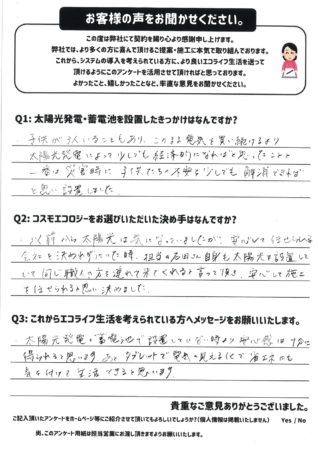 お客様の声をお聞かせください。
この度は弊社にて契約を賜り心より感謝申し上げます。
弊社では、より多くの方に喜んで頂けるご提案・施工に本気で取り組んでおります。
これから、システムの導入を考えられている方に、より良いエコライフ生活を送って
頂けるようにこのアンケートを活用させて頂ければと思っております。
よかったこと、嬉しかったことなど、率直な意見をお聞かせください。
Q1: 太陽光発電・蓄電池を設置したきっかけはなんですか?
子供が3人いることもあり、このまま電気を買い続けるより
太陽光発電によって少しでも経済的になればと思ったことと
一番は災害時に子供たちの不安を少しでも解消できれば
と思い設置しました
Q2: コスモエコロジーをお選びいただいた決め手はなんですか?
以前から太陽光は気になっていましたが、安心して任せられる
会社を決めれずにいた時、担当の石田さん自身も太陽光を設置して
いて同じ職人の方を連れて来てくれると言って頂き、安心して施工
を任せられると思い決めました。
Q3: これからエコライフ生活を考えられている方へメッセージをお願いいたします。
太陽光発電や蓄電池で設置していない時より安心感は十分に
得られると思います。あと タブレットで電気の見える化で省エネにも
気を付けて生活できると思います。
貴重なご意見ありがとうございました。
ご記入頂いたアンケートをホームページ等にご紹介させて頂いてもよろしいでしょうか?(個人情報は掲載いたしません) Yes / No
尚、このアンケート用紙は担当営業にお渡し頂きますようお願いいたします。